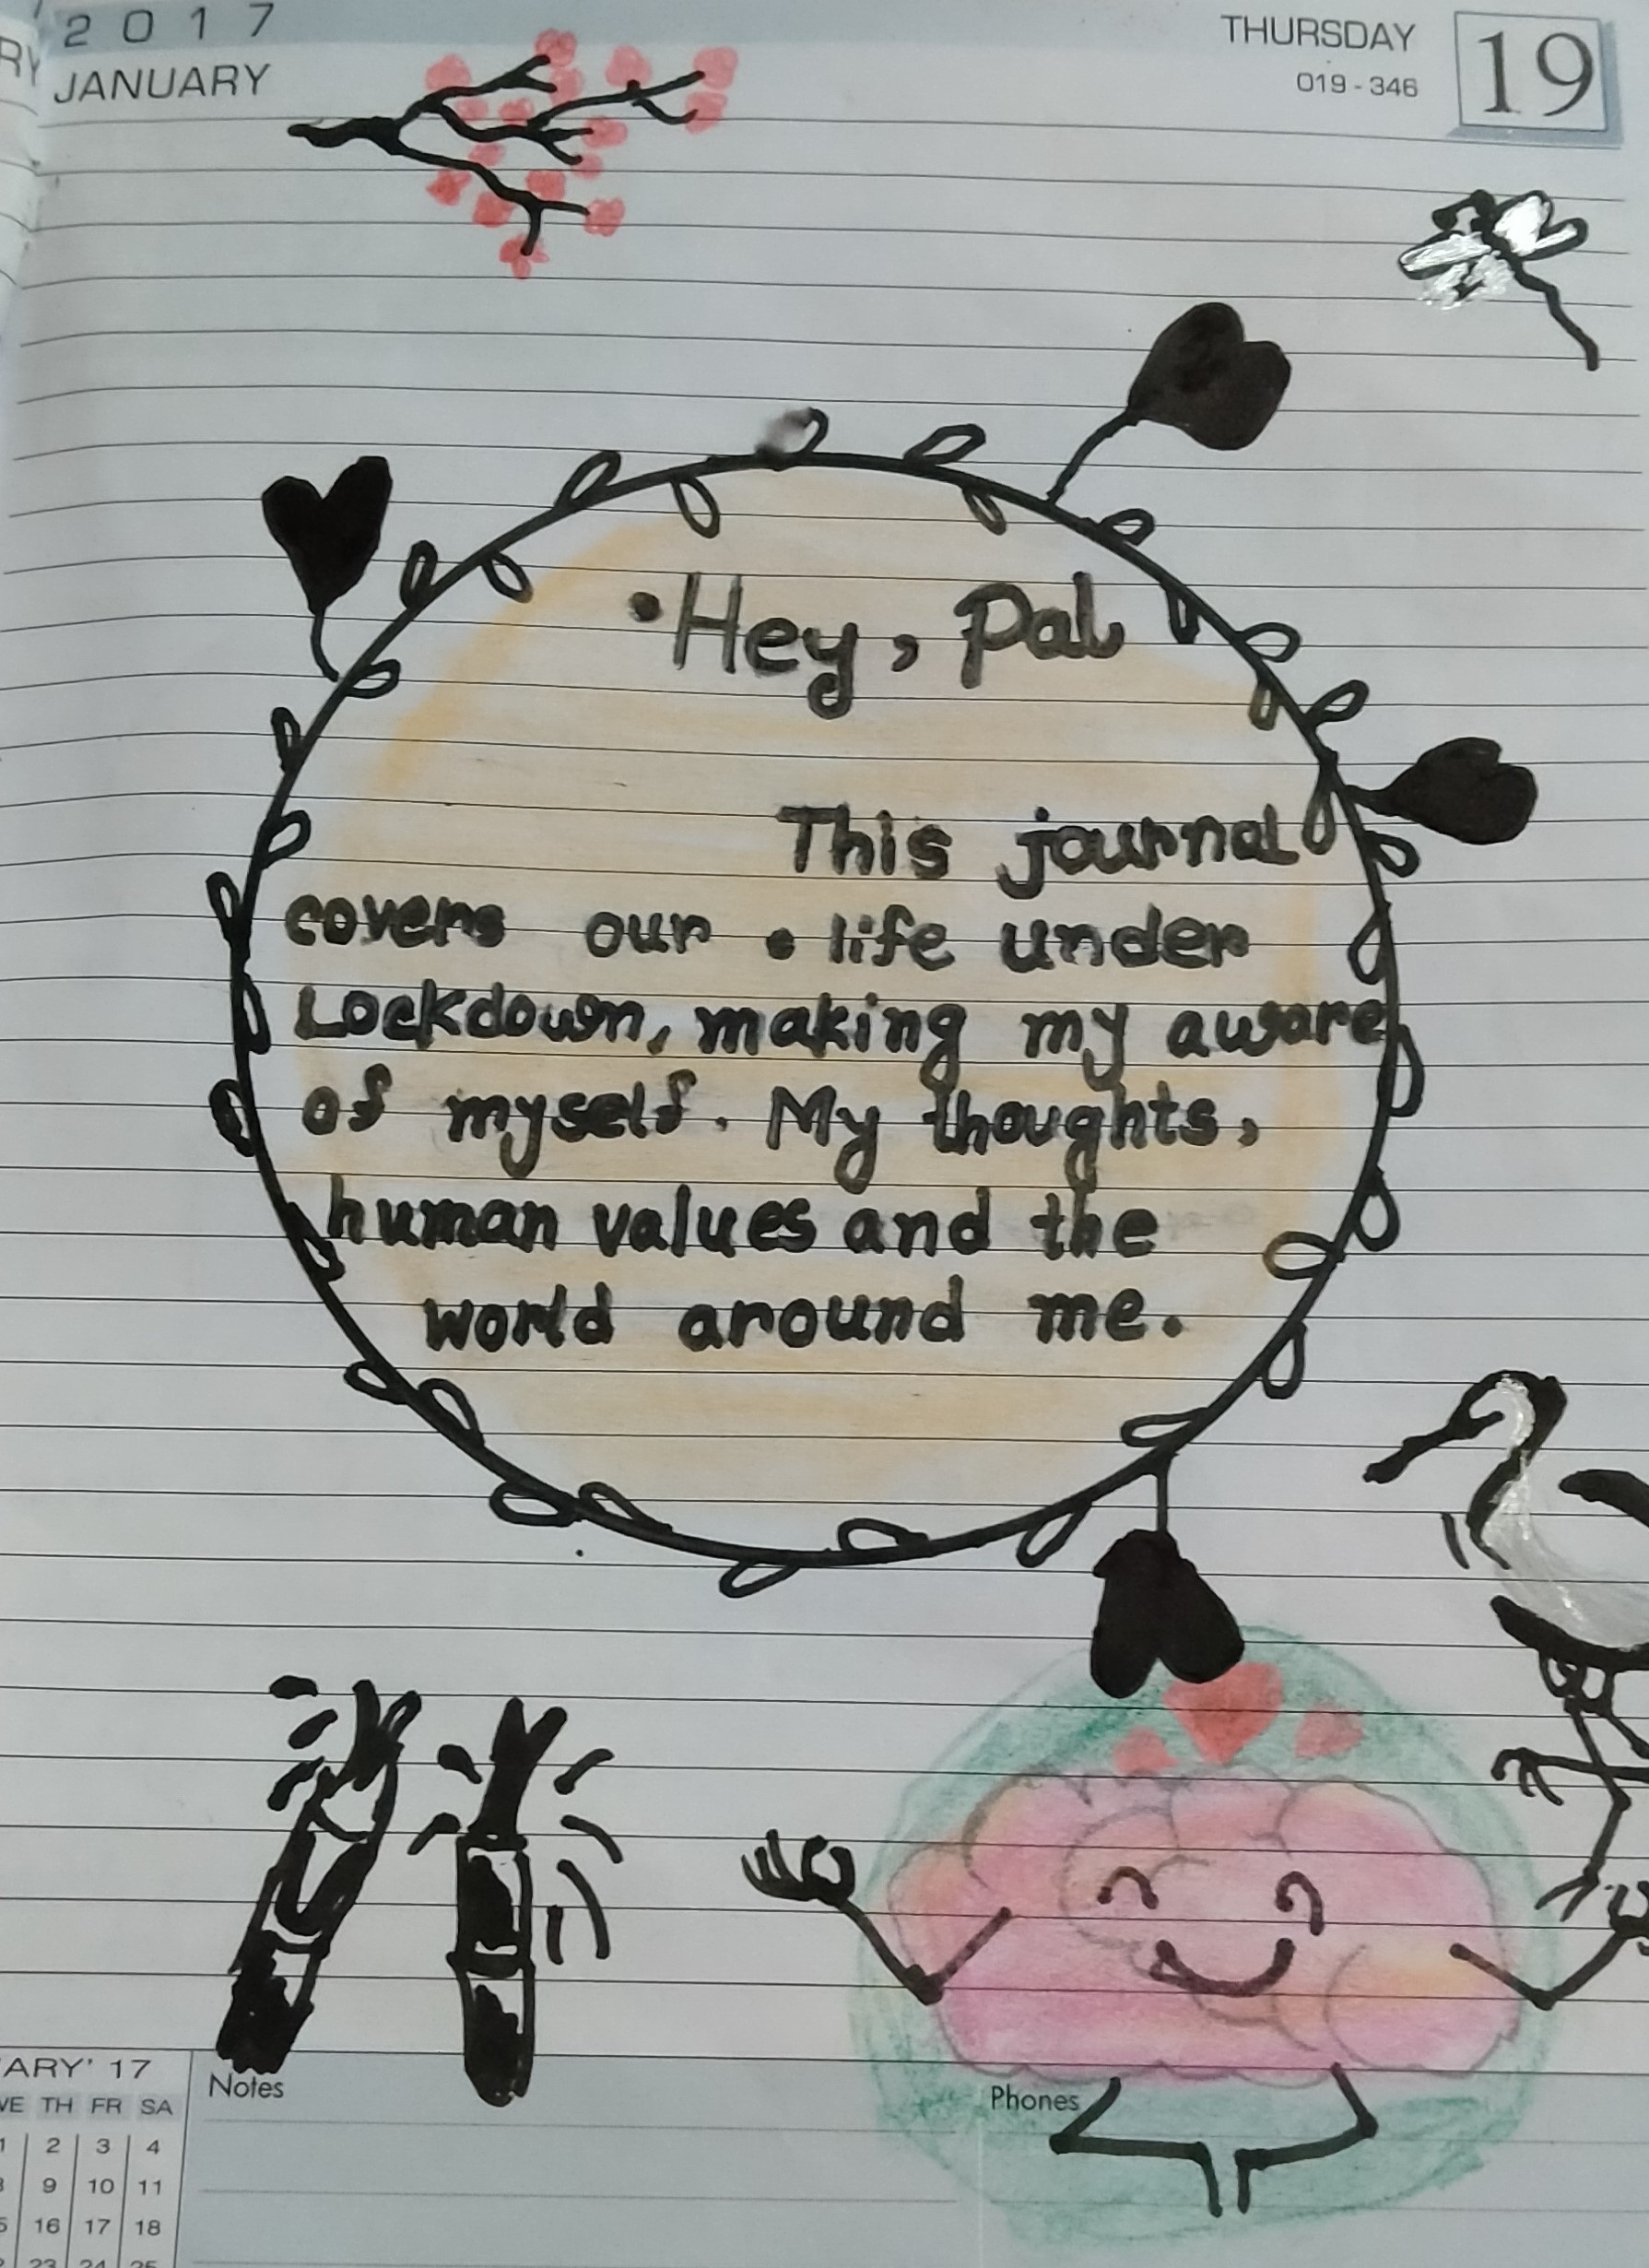 2017
JANUARY
THURSDAY
019 - 346
19
Hey, Pal
This journal
covers our life under
Lockdown, making my aware
of myself. My thoughts,
human values and the
world around me.
ARY' 17
Notes
Phones
WE TH FR SA
1 2 3 4
8 9 10 11
16 17 18
23 24 25